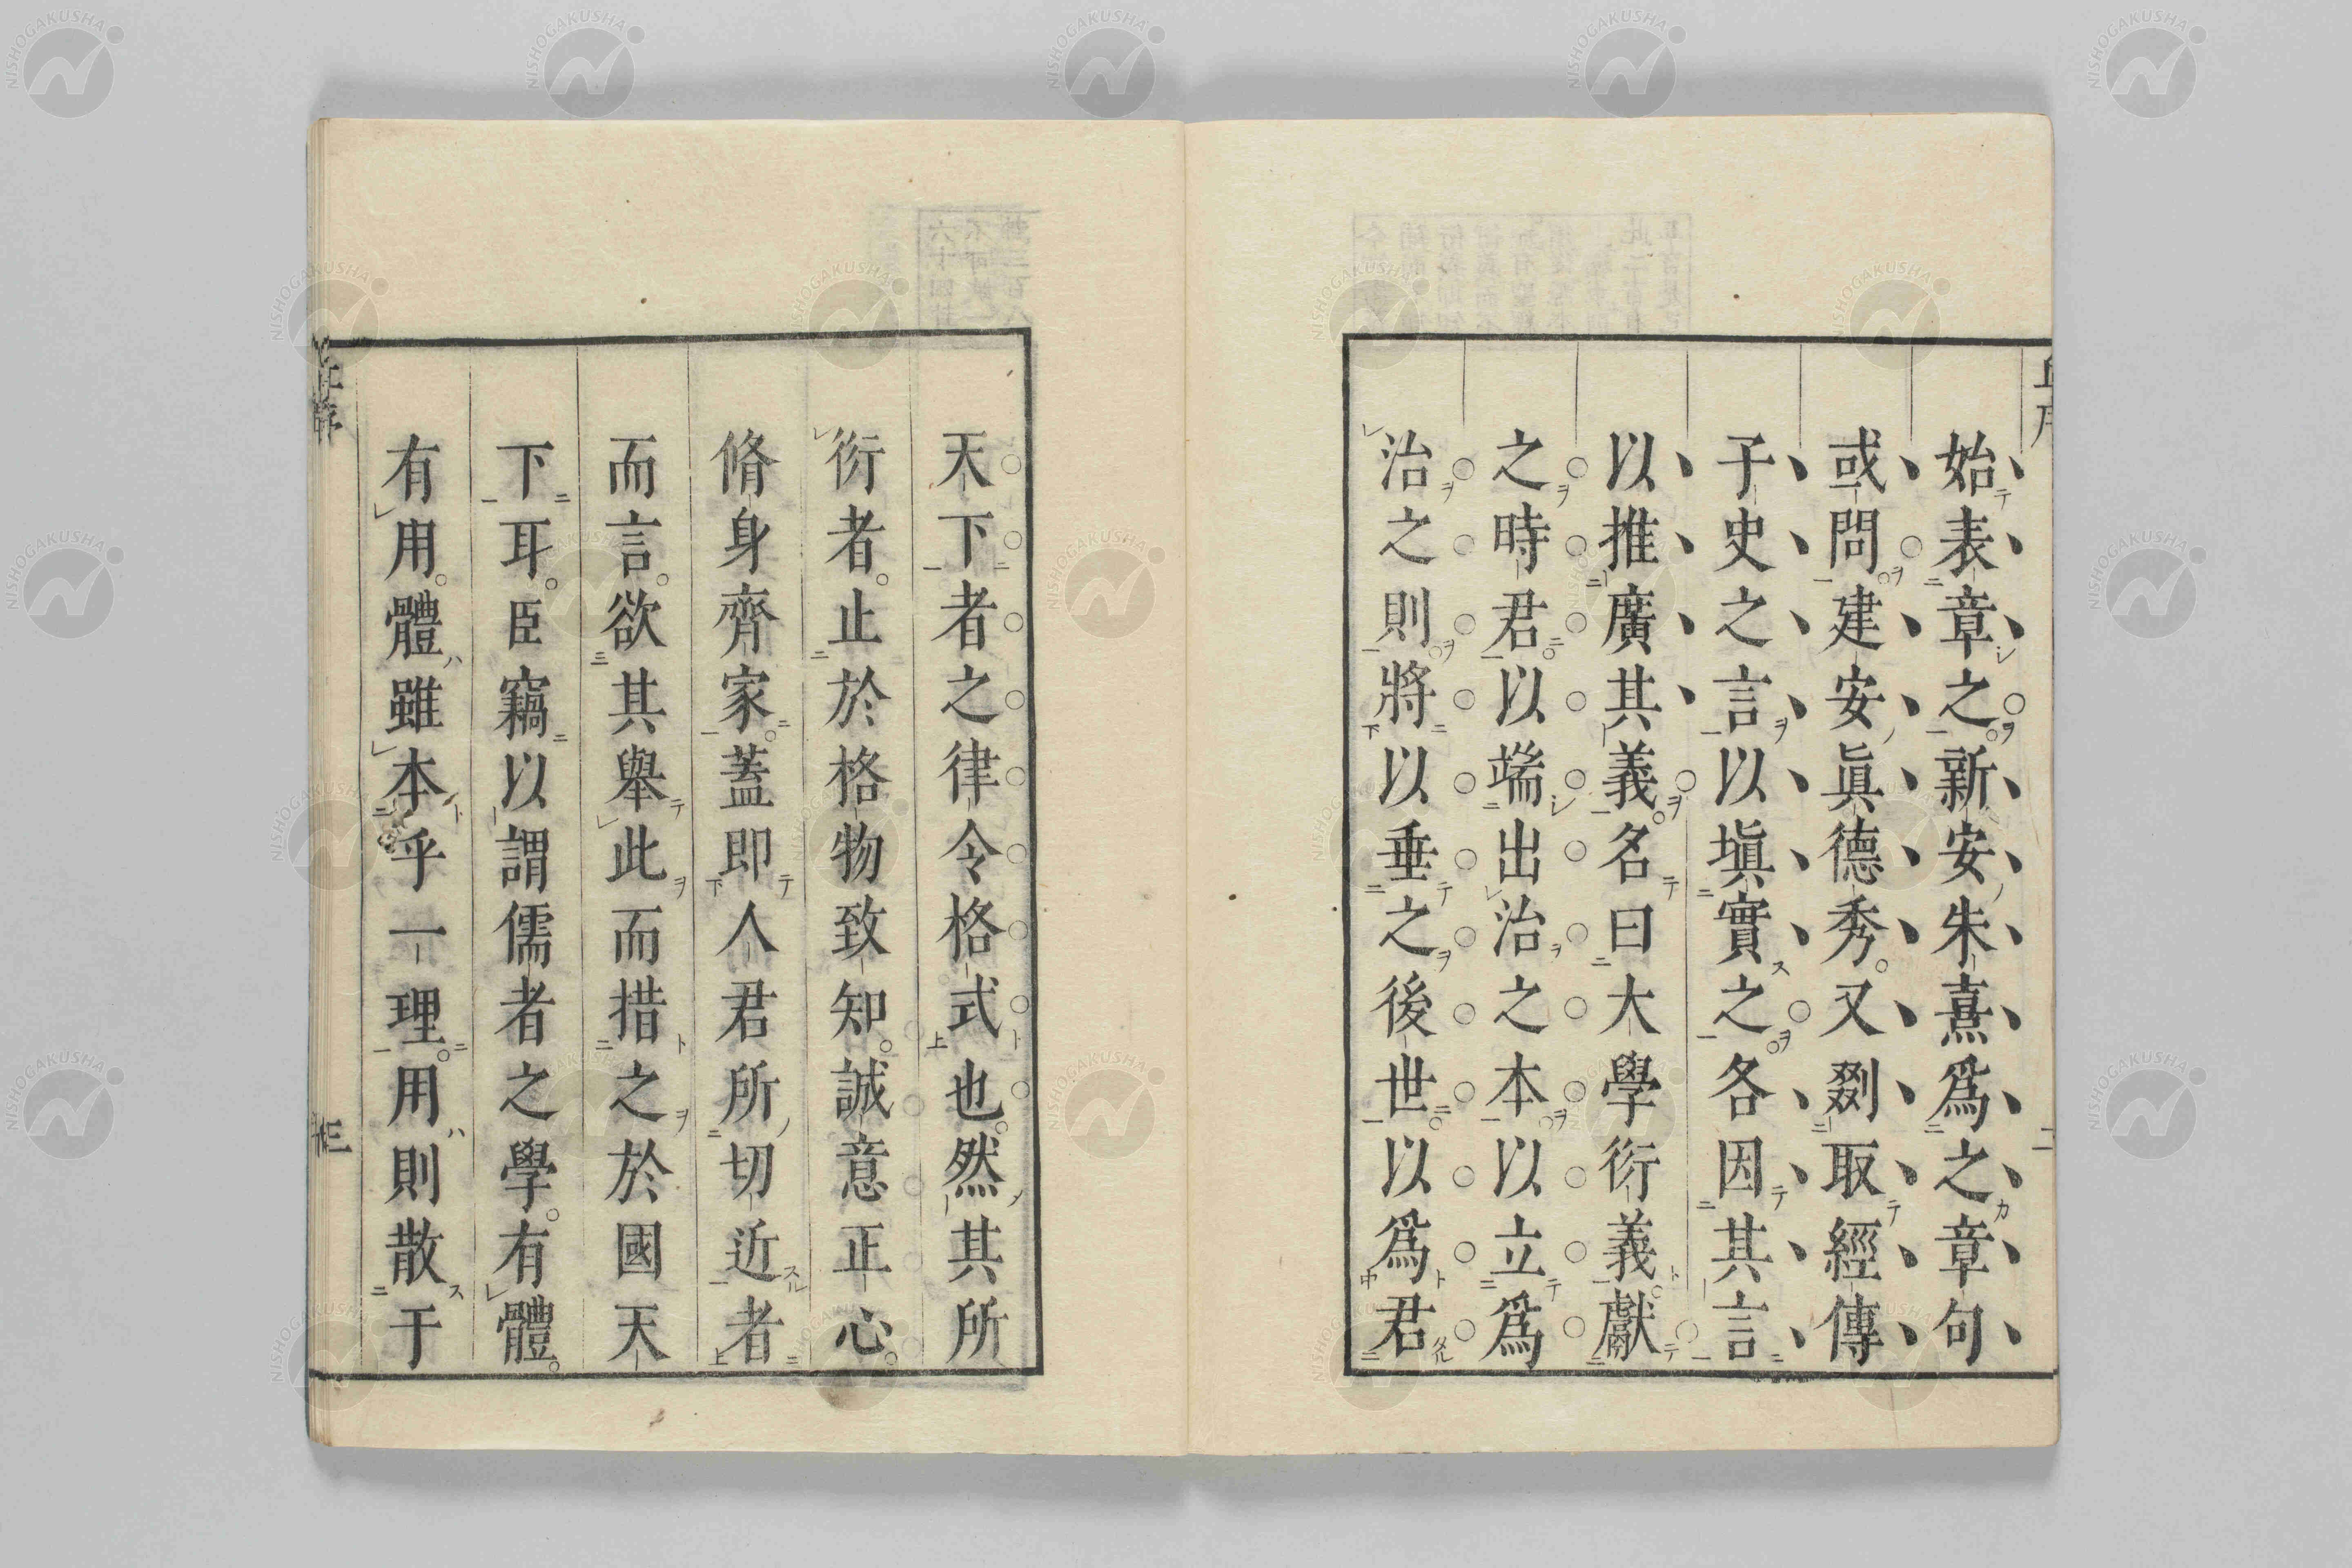 始表章之新安朱熹爲之章句
或問建安眞德秀又剟取經傳
子史之言以塡實之各因其言
以推廣其義名曰大學衍義獻
之時君以端出治之本以立爲
治之則將以垂之後世以爲君
天下者之律令格式也然其所
衍者止於格物致知誠意正心
脩身齊家蓋即人君所切近者
而言欲其舉此而措之於國天
下耳臣竊以謂儒者之學有體
有用體雖本乎一理用則散于
NISHOGAKUSHA